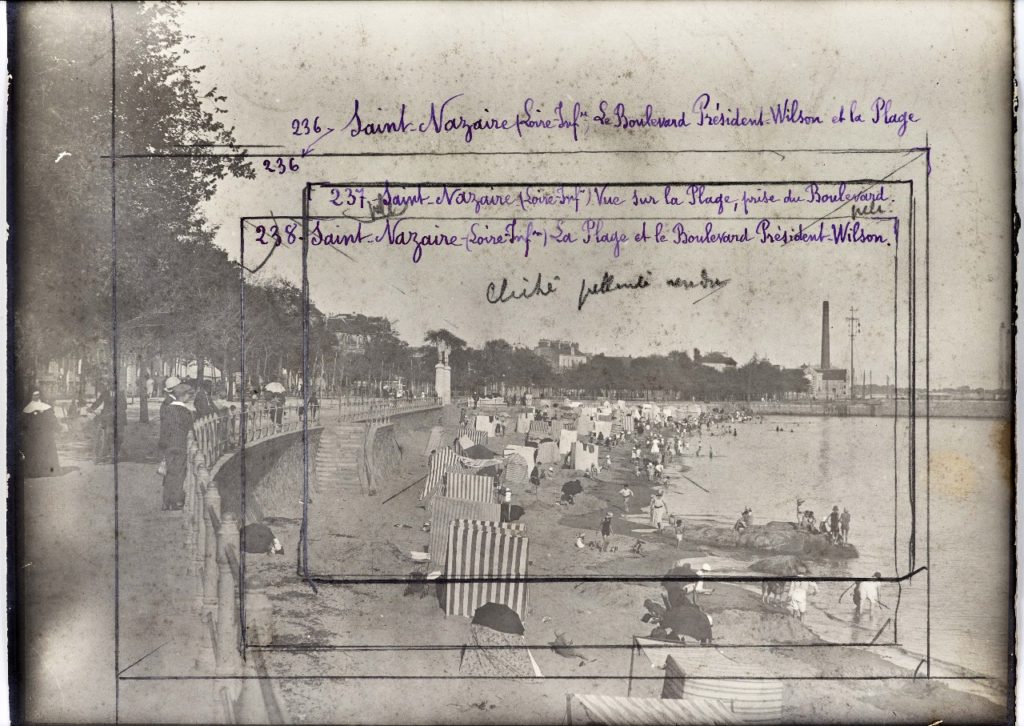 236 Saint-Nazaire (Loire-Infre) Le Boulevard Président-Wilson et la Plage
236
237 - Saint-Nazaire (Loire-Infre) Vue sur la Plage, prise du Boulevard.
238 - Saint-Nazaire - (Loire-Infre) La Plage et le Boulevard Président-Wilson.
cliché